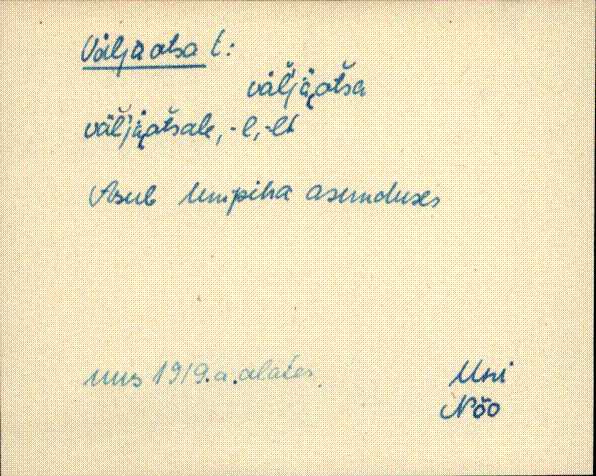 Väljaotsa t:
väĺjäotsa
väĺjäotsale, -l, -lt
Asub umpiha asunduses
uus 1919.a. alates.
Uni
Nõo